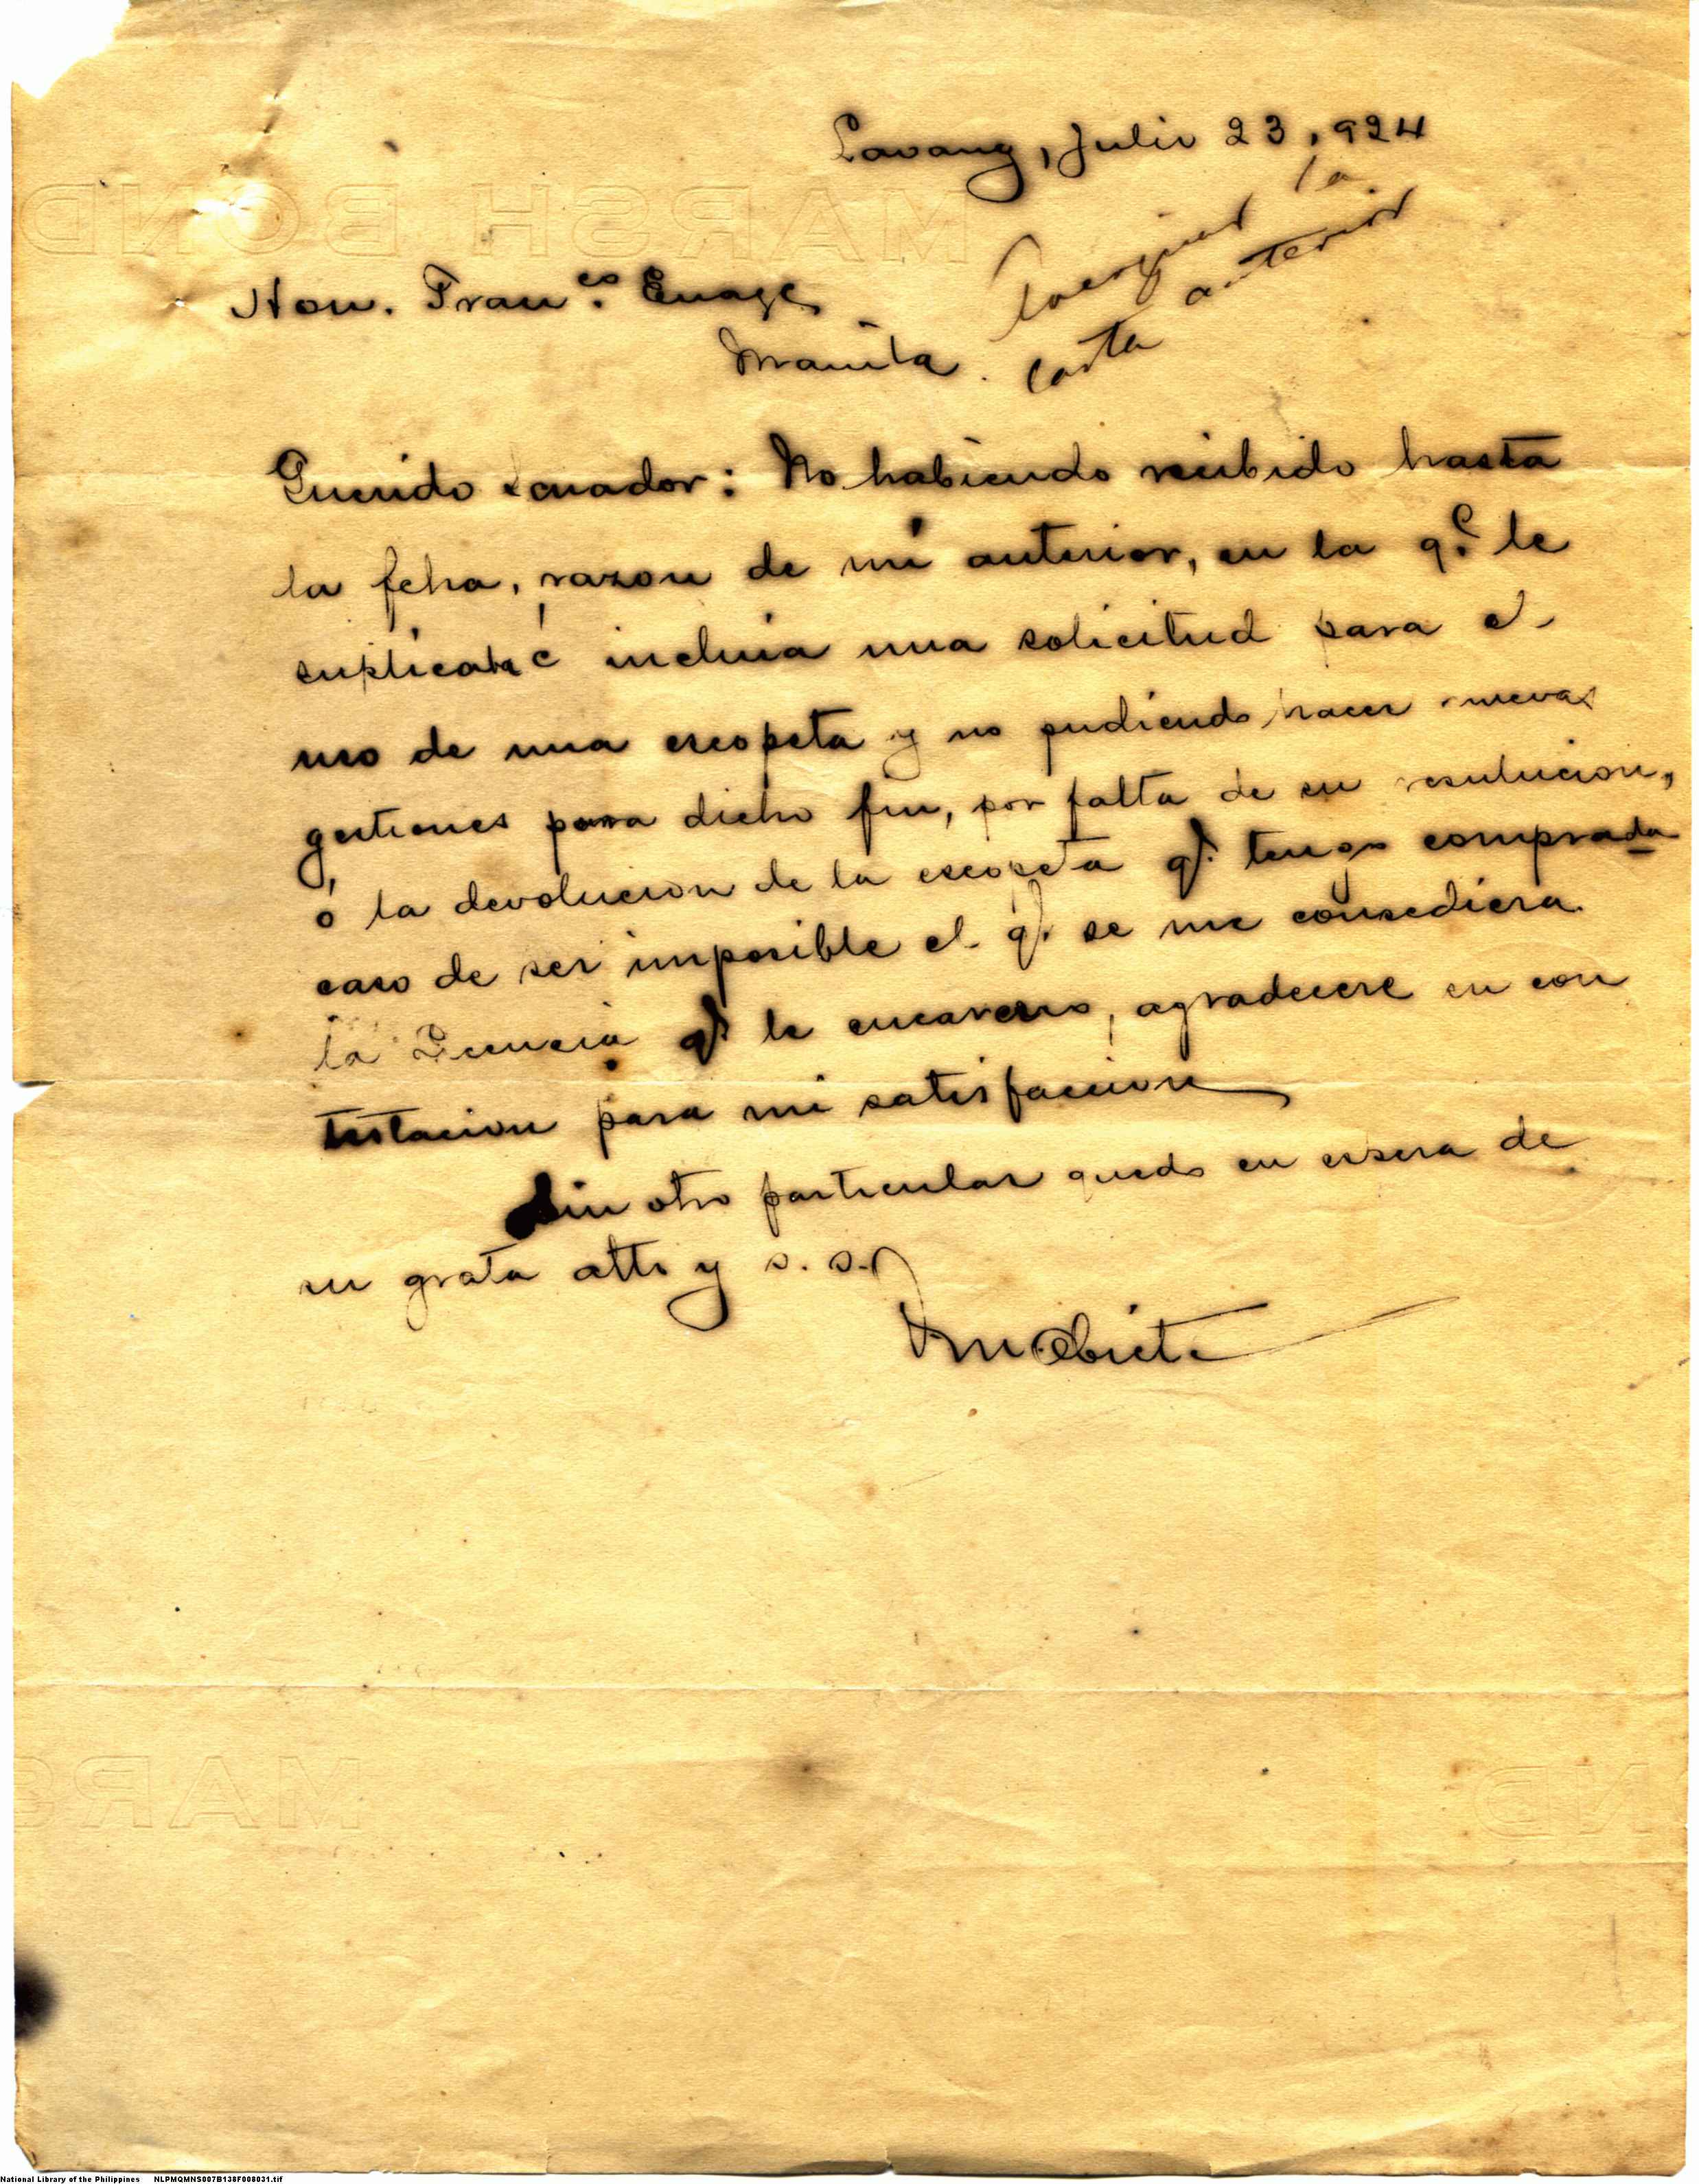 Lavang, Julio 23, 924
la
carta anterior
Hon. Fran.co Enage
Manila.
Querido senador: No habiendo recibido hasta
la feha, razon de mi anterior, en la q.e le
suplicaba é incluia una solicitud para el
uso de una escopeta y no pudiendo hacer nuevas
gestiones para dicho fin, por falta de su resulucion,
ó la devolucion de la escopeta q.e tengo comprada
caso de ser imposible el q.e se me consediera
la Licencia q.e le encarezco, agradecere su con
testacion para mi satisfaccion
Sin otro particular quedo en espera de
su grata atto y s. s.
MARSH BOND
MARS
ND
National Library of the Philippines NLPMQMNS007B138F008031.tif